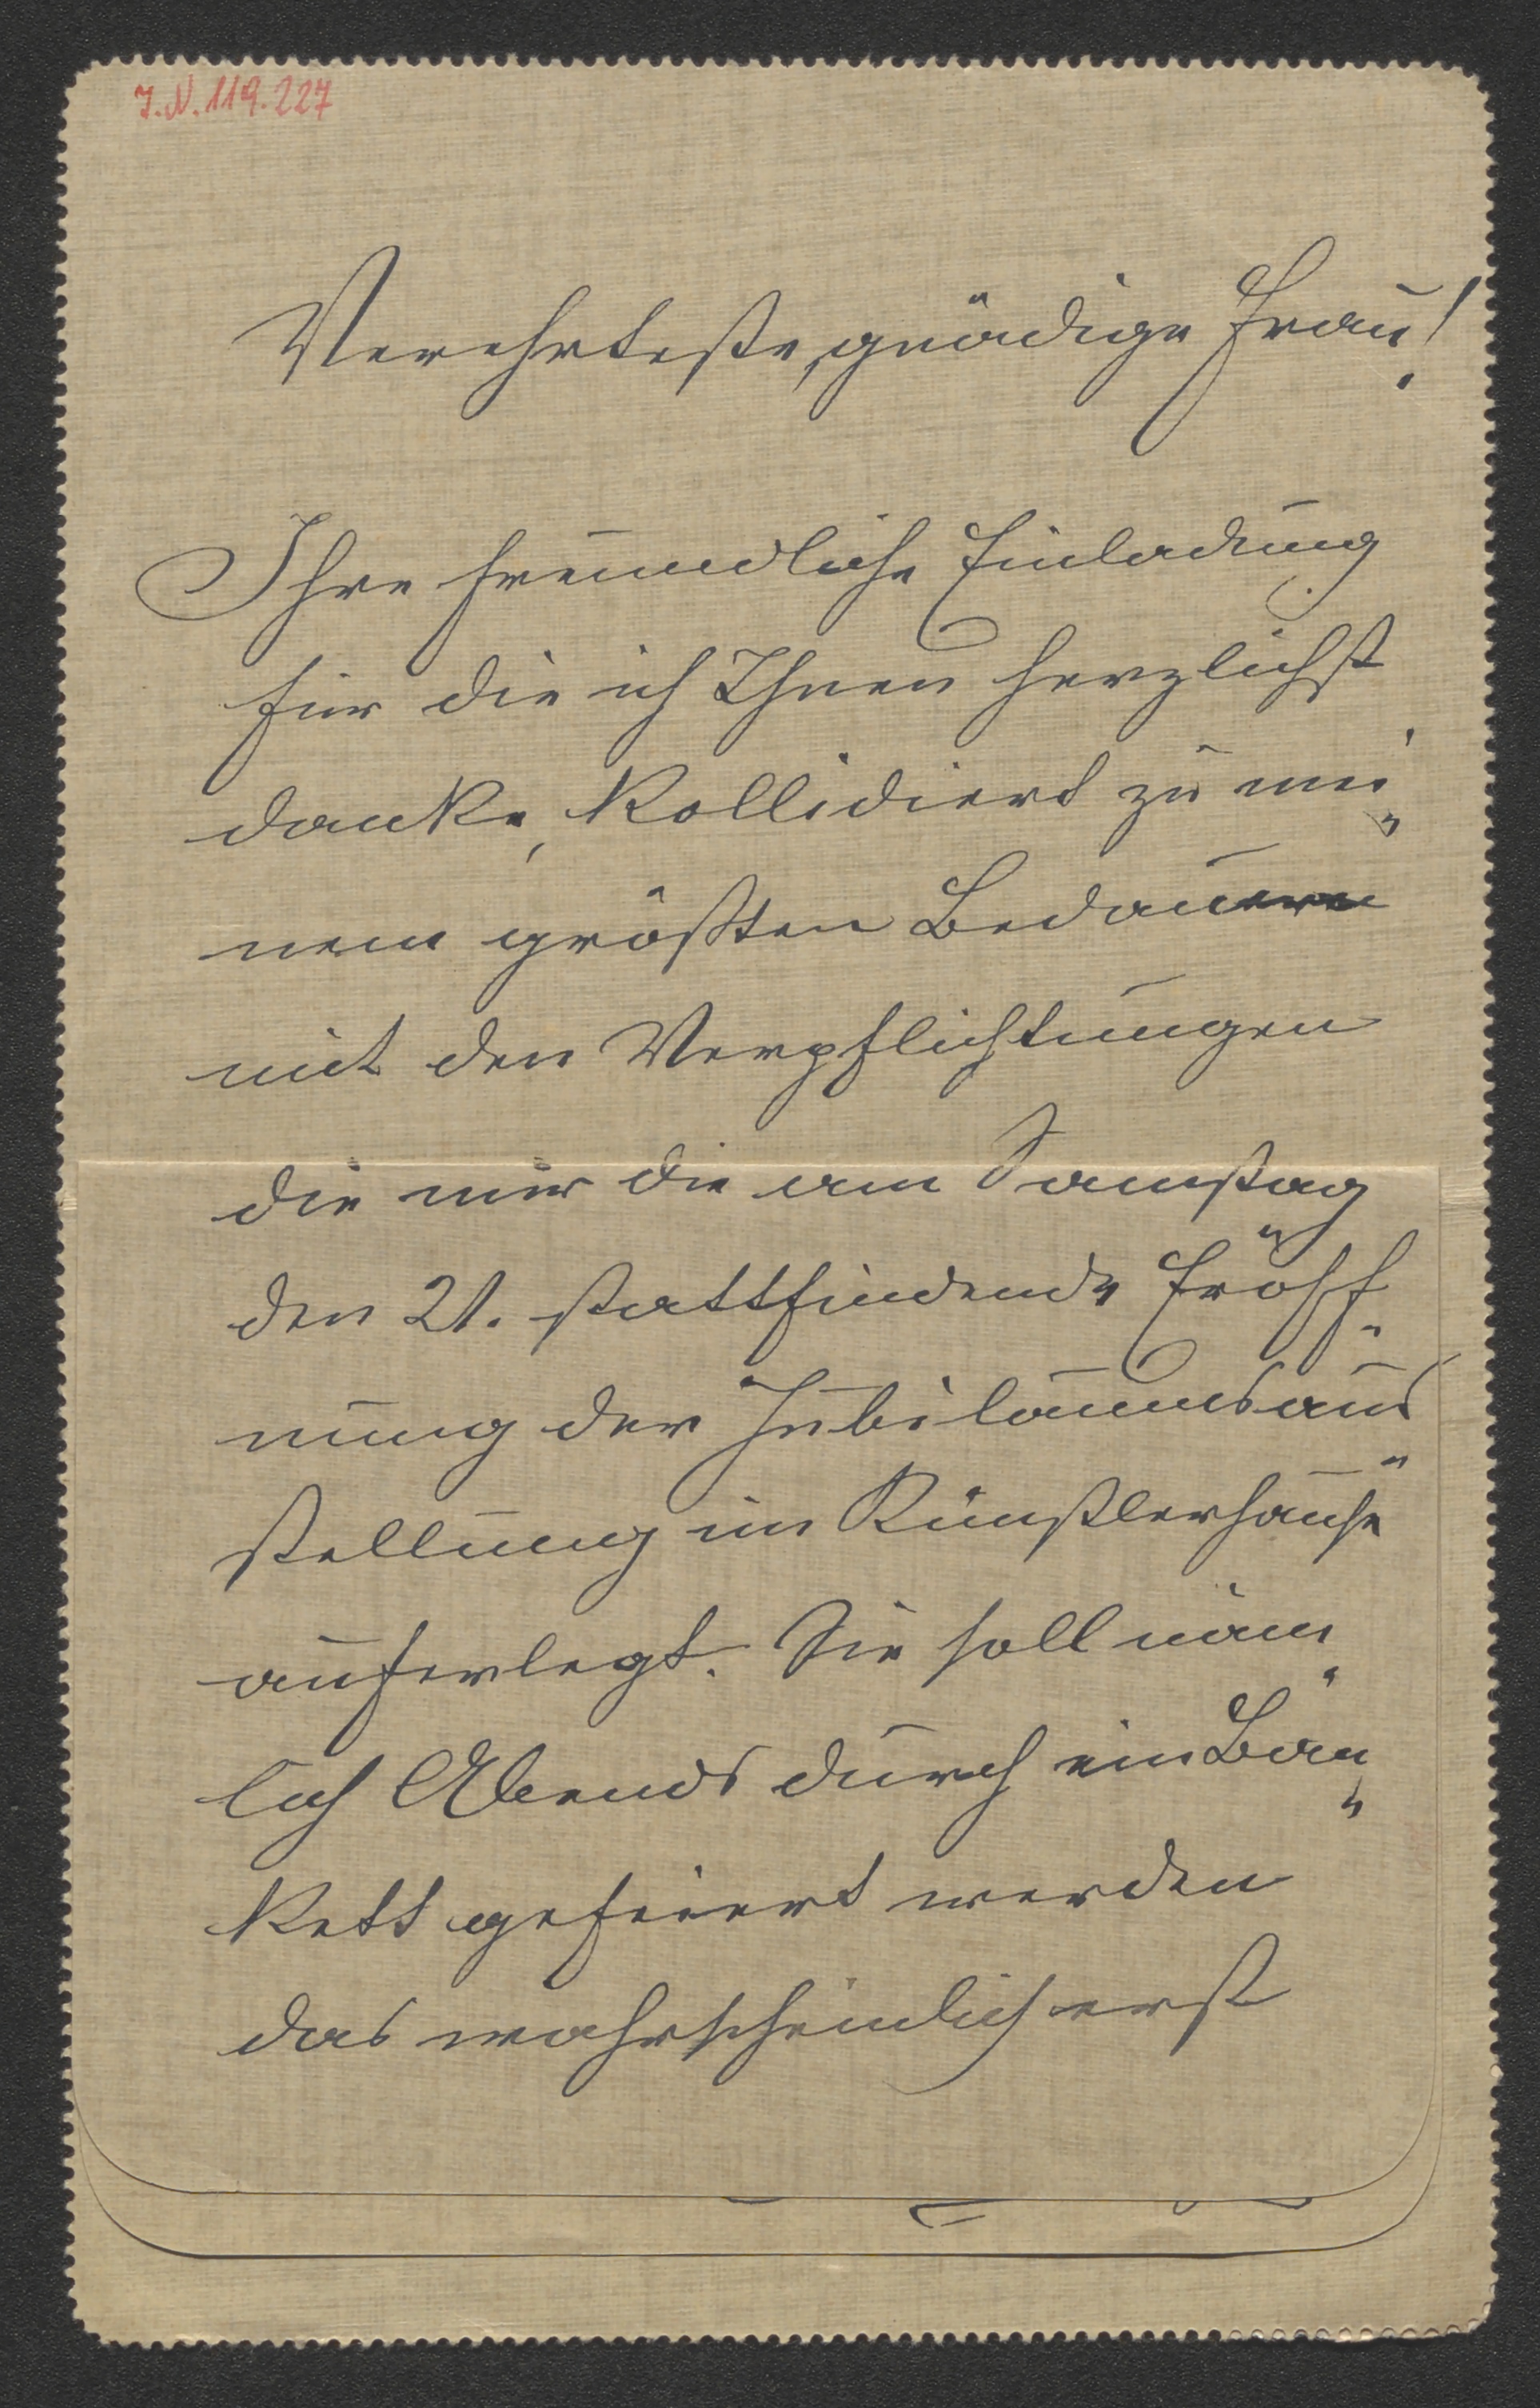 J.N. 119.227
Verehrteste, gnädige Frau!
Ihre freundliche Einladung
für die ich Ihnen herzlichst
danke, kollidiert zu mei„
nem größten Bedauern
mit den Verpflichtungen
die mir die am Samstag
den 21. stattfindende Eröff„
nung der Jubiläumsaus„
stellung im Künstlerhause
auferlegt. Sie soll näm„
lich Abends durch ein Ban„
kett gefeiert werden
das wahrscheinlich erst